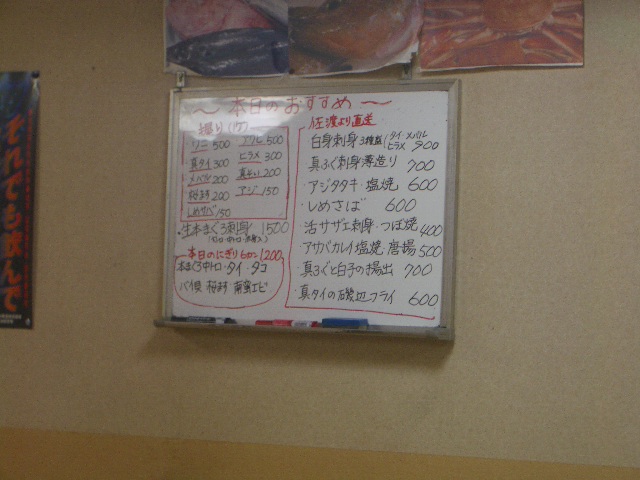 ～本日のおすすめ～
握り(1ケ)
ウニ 500
アワビ 500
真タイ 300
ヒラメ 300
メバル 200
200
桜ます 200
アジ 150
しめサバ 150
・生本まぐろ刺身 1500
本日のにぎり6カン 1200
本まぐろ中トロ・タイ・タコ
バイ貝 桜ます 南蛮エビ
佐渡より直送
白身刺身 3種盛(タイ・メバル ヒラメ 900
・真ふぐ刺身薄造り 700
・アジタタキ・塩焼 600
・しめさば 600
・活サザエ刺身・つぼ焼 400
・アサバカレイ塩焼 唐揚 500
・真ふぐと白子の揚出 700
・真タイの磯辺フライ 600
それでも飲んで